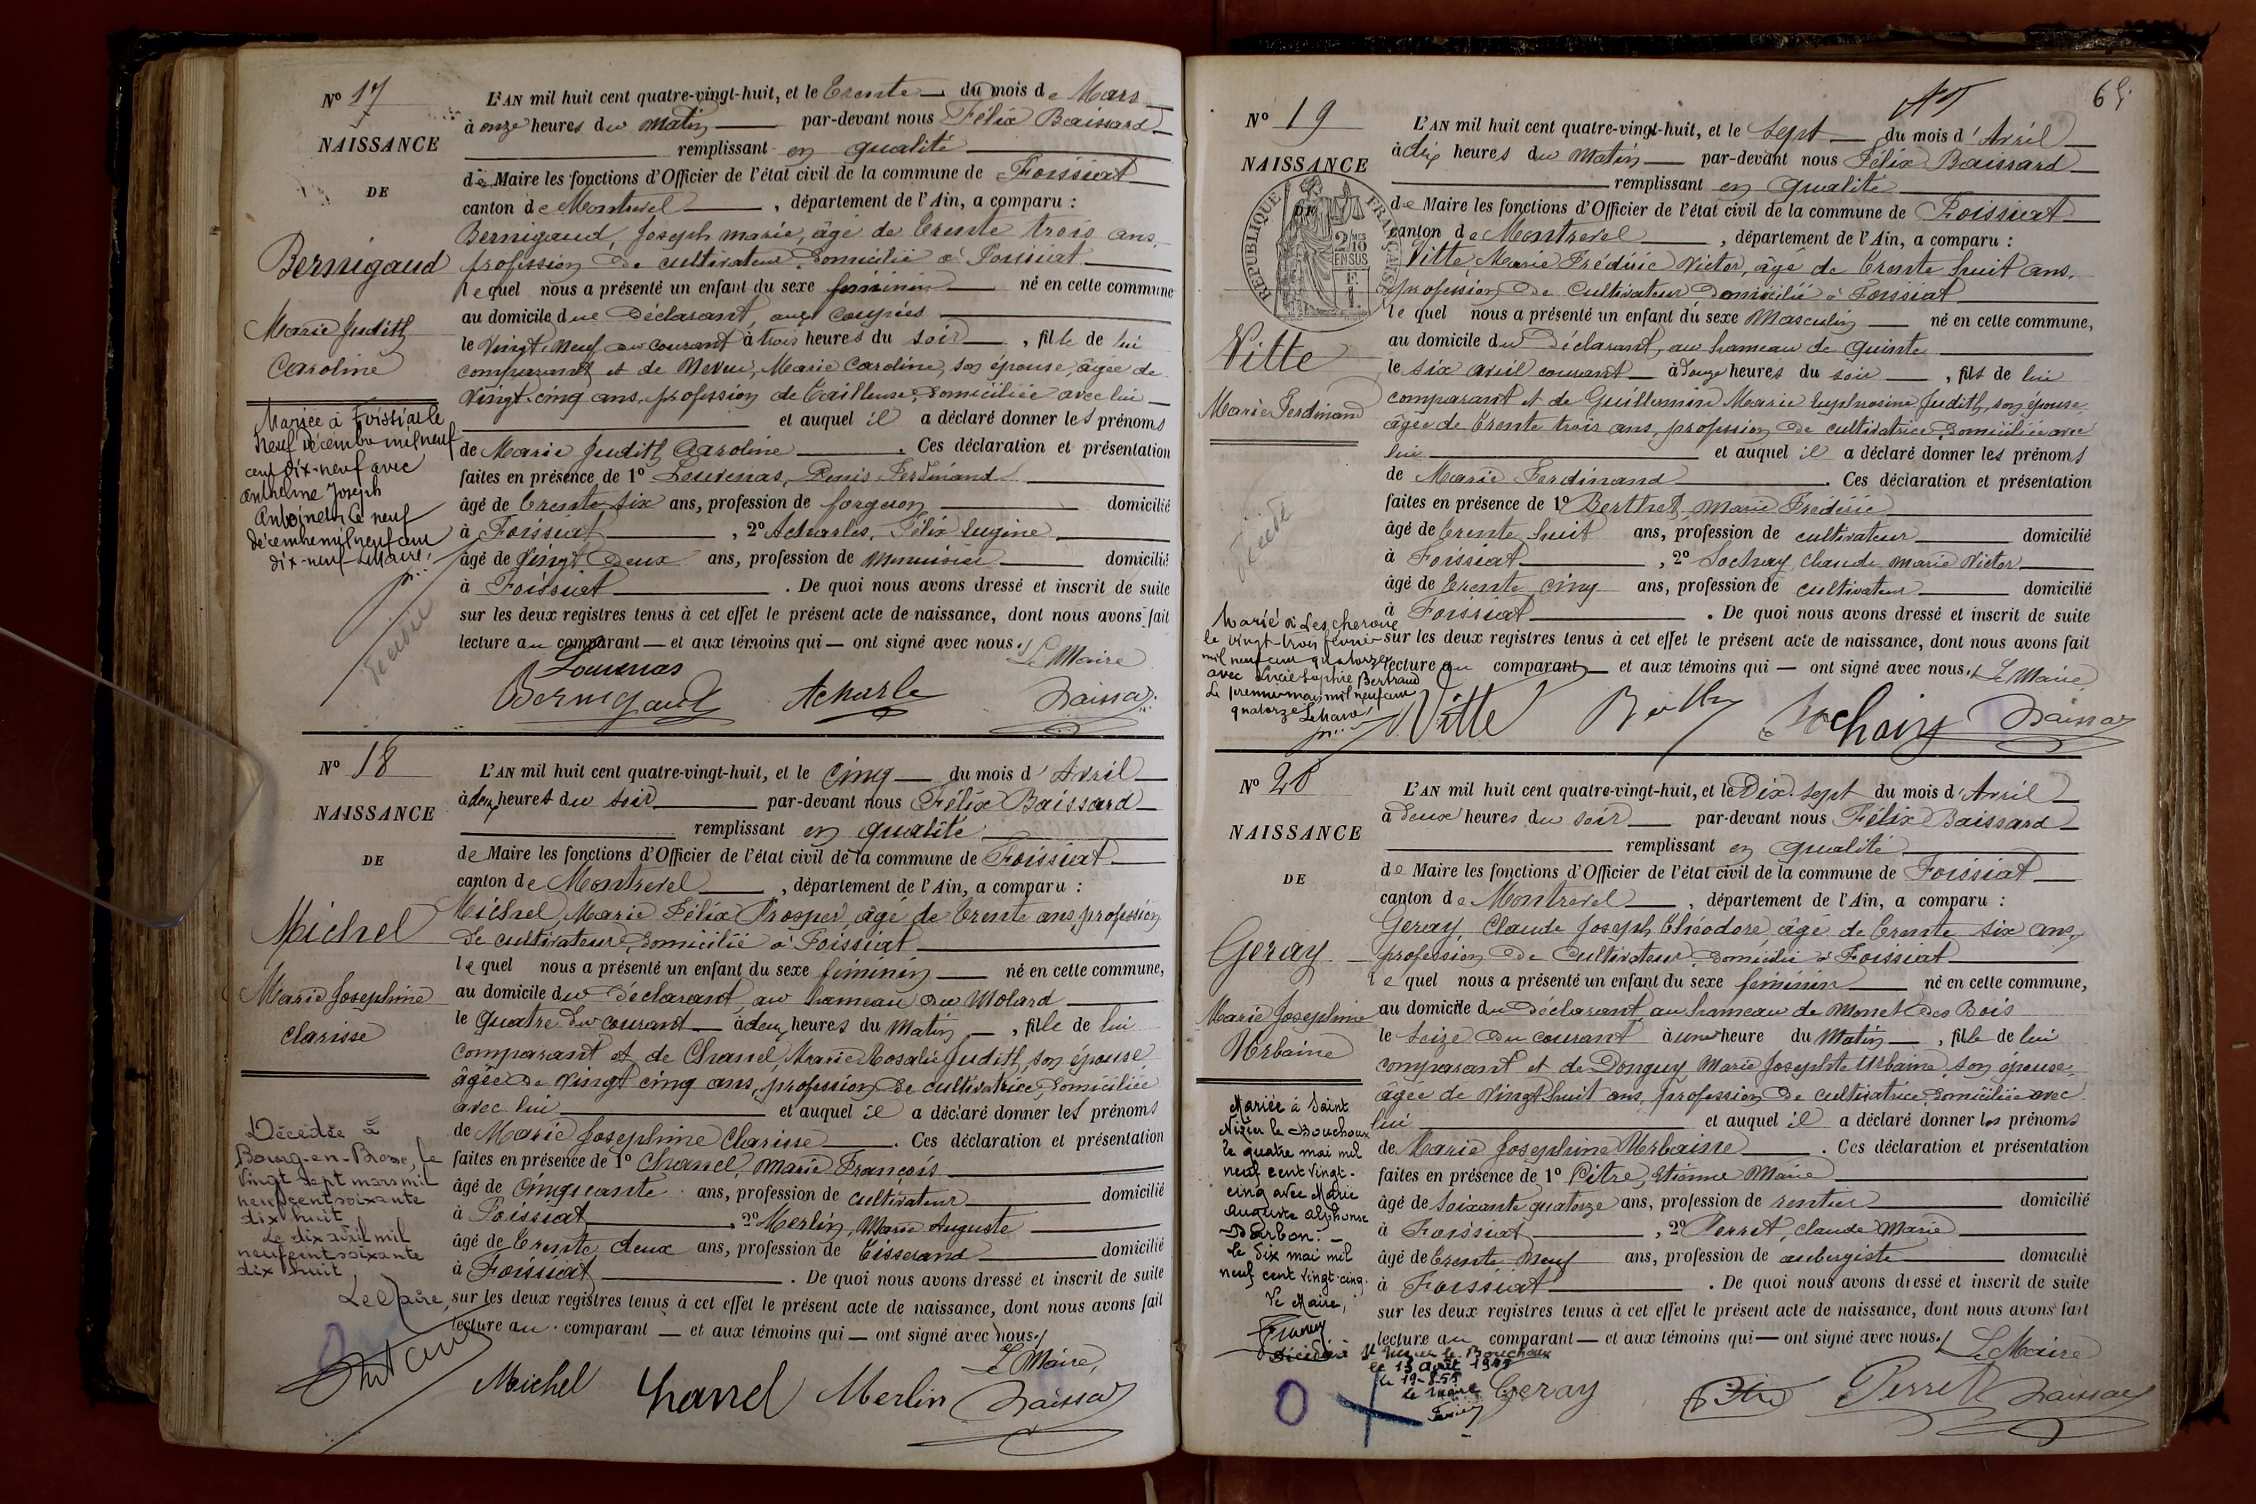 N° 17
NAISSANCE
DE
Bernigaud
Marie Judith
Caroline
Mariée à Foissiat le
neuf décembre mil neuf
cent dix-neuf avec
Anthelme Joseph
Antoinet le neuf
décembre mil neuf cent
dix-neuf Le Maire,
décédée
L'AN mil huit cent quatre-vingt-huit, et le trente du mois de Mars
à onze heures du matin par-devant nous Félix Baissard
remplissant en qualité
de Maire les fonctions d'Officier de l'état civil de la commune de Foissiat
canton de Montrevel, département de l'Ain, a comparu :
Bernigaud, Joseph marie, âgé de trente trois ans,
profession de cultivateur domicilié à Foissiat
lequel nous a présenté un enfant du sexe féminin né en cette commune
au domicile du Déclarant, aux
le vingt neuf du courant à trois heures du soir, fille de lui
comparant et de Neveu, Marie Caroline, son épouse, âgée de
vingt cinq ans, profession de tailleuse, domiciliée avec lui
et auquel il a déclaré donner les prénoms
de Marie Judith Caroline. Ces déclaration et présentation
faites en présence de 1° Louvenas, Denis Ferdinand
âgé de trente six ans, profession de forgeron domicilié
à Foissiat, 2° Acharles, Félix Eugène
âgé de vingt deux ans, profession de menuisier domicilié
à Foissiat. De quoi nous avons dressé et inscrit de suite
sur les deux registres tenus à cet effet le présent acte de naissance, dont nous avons fait
lecture au comparant et aux témoins qui ont signé avec nous. Le Maire
Louvenas
Bernigaud Acharle Baissard
N° 18
NAISSANCE
DE
Michel
Marie Josephine
Clarisse
Décédée à
Bourg-en-Bresse, le
vingt sept mars mil
neuf cent soixante
dix huit
Le dix avril mil
neuf cent soixante
dix huit,
Le Maire,
L'AN mil huit cent quatre-vingt-huit, et le cinq du mois d'Avril
à deux heures du soir par-devant nous Félix Baissard
remplissant en qualité
de Maire les fonctions d'Officier de l'état civil de la commune de Foissiat
canton de Montrevel, département de l'Ain, a comparu :
Michel, Marie Félix Prosper, âgé de trente ans, profession
de cultivateur, domicilié à Foissiat
lequel nous a présenté un enfant du sexe féminin né en cette commune,
au domicile du Déclarant, au hameau du Molard
le quatre du courant à deux heures du matin, fille de lui
comparant et de Chanel, Marie Rosalie Judith, son épouse
âgée de vingt cinq ans, profession de cultivatrice, domiciliée
avec lui et auquel il a déclaré donner les prénoms
de Marie Josephine Clarisse. Ces déclaration et présentation
faites en présence de 1° Chanel, Marie François
âgé de cinquante ans, profession de cultivateur domicilié
à Foissiat, 2° Merlin, Marie Auguste
âgé de trente deux ans, profession de tisserand domicilié
à Foissiat. De quoi nous avons dressé et inscrit de suite
sur les deux registres tenus à cet effet le présent acte de naissance, dont nous avons fait
lecture au comparant et aux témoins qui ont signé avec nous.
Le Maire,
Michel Chanel Merlin Baissard
65
N° 19
NAISSANCE
DE
RÉPUBLIQUE FRANÇAISE
2/10 EN SUS
Vitte
Marie Ferdinand
décédé
Marié à Lescheroux
le vingt-trois février
mil neuf cent quatorze
avec Lucie Sophie Bertrand
Le premier mars mil neuf cent
quatorze Le Maire
L'AN mil huit cent quatre-vingt-huit, et le sept du mois d'Avril
à dix heures du matin par-devant nous Félix Baissard
remplissant en qualité
de Maire les fonctions d'Officier de l'état civil de la commune de Foissiat
canton de Montrevel, département de l'Ain, a comparu :
Vitte, Marie Frédéric Victor, âgé de trente huit ans,
profession de cultivateur domicilié à Foissiat
lequel nous a présenté un enfant du sexe masculin né en cette commune,
au domicile du Déclarant, au hameau de Quinte
le six avril courant à douze heures du soir, fils de lui
comparant et de Guillemin Marie Euphrosine Judith, son épouse,
âgée de trente trois ans, profession de cultivatrice domiciliée avec
lui et auquel il a déclaré donner les prénoms
de Marie Ferdinand. Ces déclaration et présentation
faites en présence de 1° Berthet, Marie Frédéric
âgé de trente huit ans, profession de cultivateur domicilié
à Foissiat, 2° Sochay, Claude Marie Victor
âgé de trente cinq ans, profession de cultivateur domicilié
à Foissiat. De quoi nous avons dressé et inscrit de suite
sur les deux registres tenus à cet effet le présent acte de naissance, dont nous avons fait
lecture au comparant et aux témoins qui ont signé avec nous. Le Maire
Vitte Sochay Baissard
N° 20
NAISSANCE
DE
Geray
Marie Josephine
Urbaine
Mariée à Saint
Nizier le Bouchoux
le quatre mai mil
neuf cent vingt-
cinq avec Marie
Auguste Alphonse
Darbon.
le dix mai mil
neuf cent vingt-cinq.
Le Maire,
L'AN mil huit cent quatre-vingt-huit, et le dix-sept du mois d'Avril
à deux heures du soir par-devant nous Félix Baissard
remplissant en qualité
de Maire les fonctions d'Officier de l'état civil de la commune de Foissiat
canton de Montrevel, département de l'Ain, a comparu :
Geray, Claude Joseph Théodore, âgé de trente six ans,
profession de cultivateur domicilié à Foissiat
lequel nous a présenté un enfant du sexe féminin né en cette commune,
au domicile du Déclarant, au hameau de Monet des Bois
le seize du courant à une heure du matin, fille de lui
comparant et de Donguy Marie Josephte Urbaine, son épouse,
âgée de vingt huit ans, profession de cultivatrice domiciliée avec
lui et auquel il a déclaré donner les prénoms
de Marie Josephine Urbaine. Ces déclaration et présentation
faites en présence de 1° Pitre, Etienne Marie
âgé de soixante quatorze ans, profession de rentier domicilié
à Foissiat, 2° Perret, Claude Marie
âgé de trente neuf ans, profession de aubergiste domicilié
à Foissiat. De quoi nous avons dressé et inscrit de suite
sur les deux registres tenus à cet effet le présent acte de naissance, dont nous avons fait
lecture au comparant et aux témoins qui ont signé avec nous. Le Maire
Décédée St Nizier le Bouchoux
le 15 août
le Maire
Geray Pitre Perret Baissard